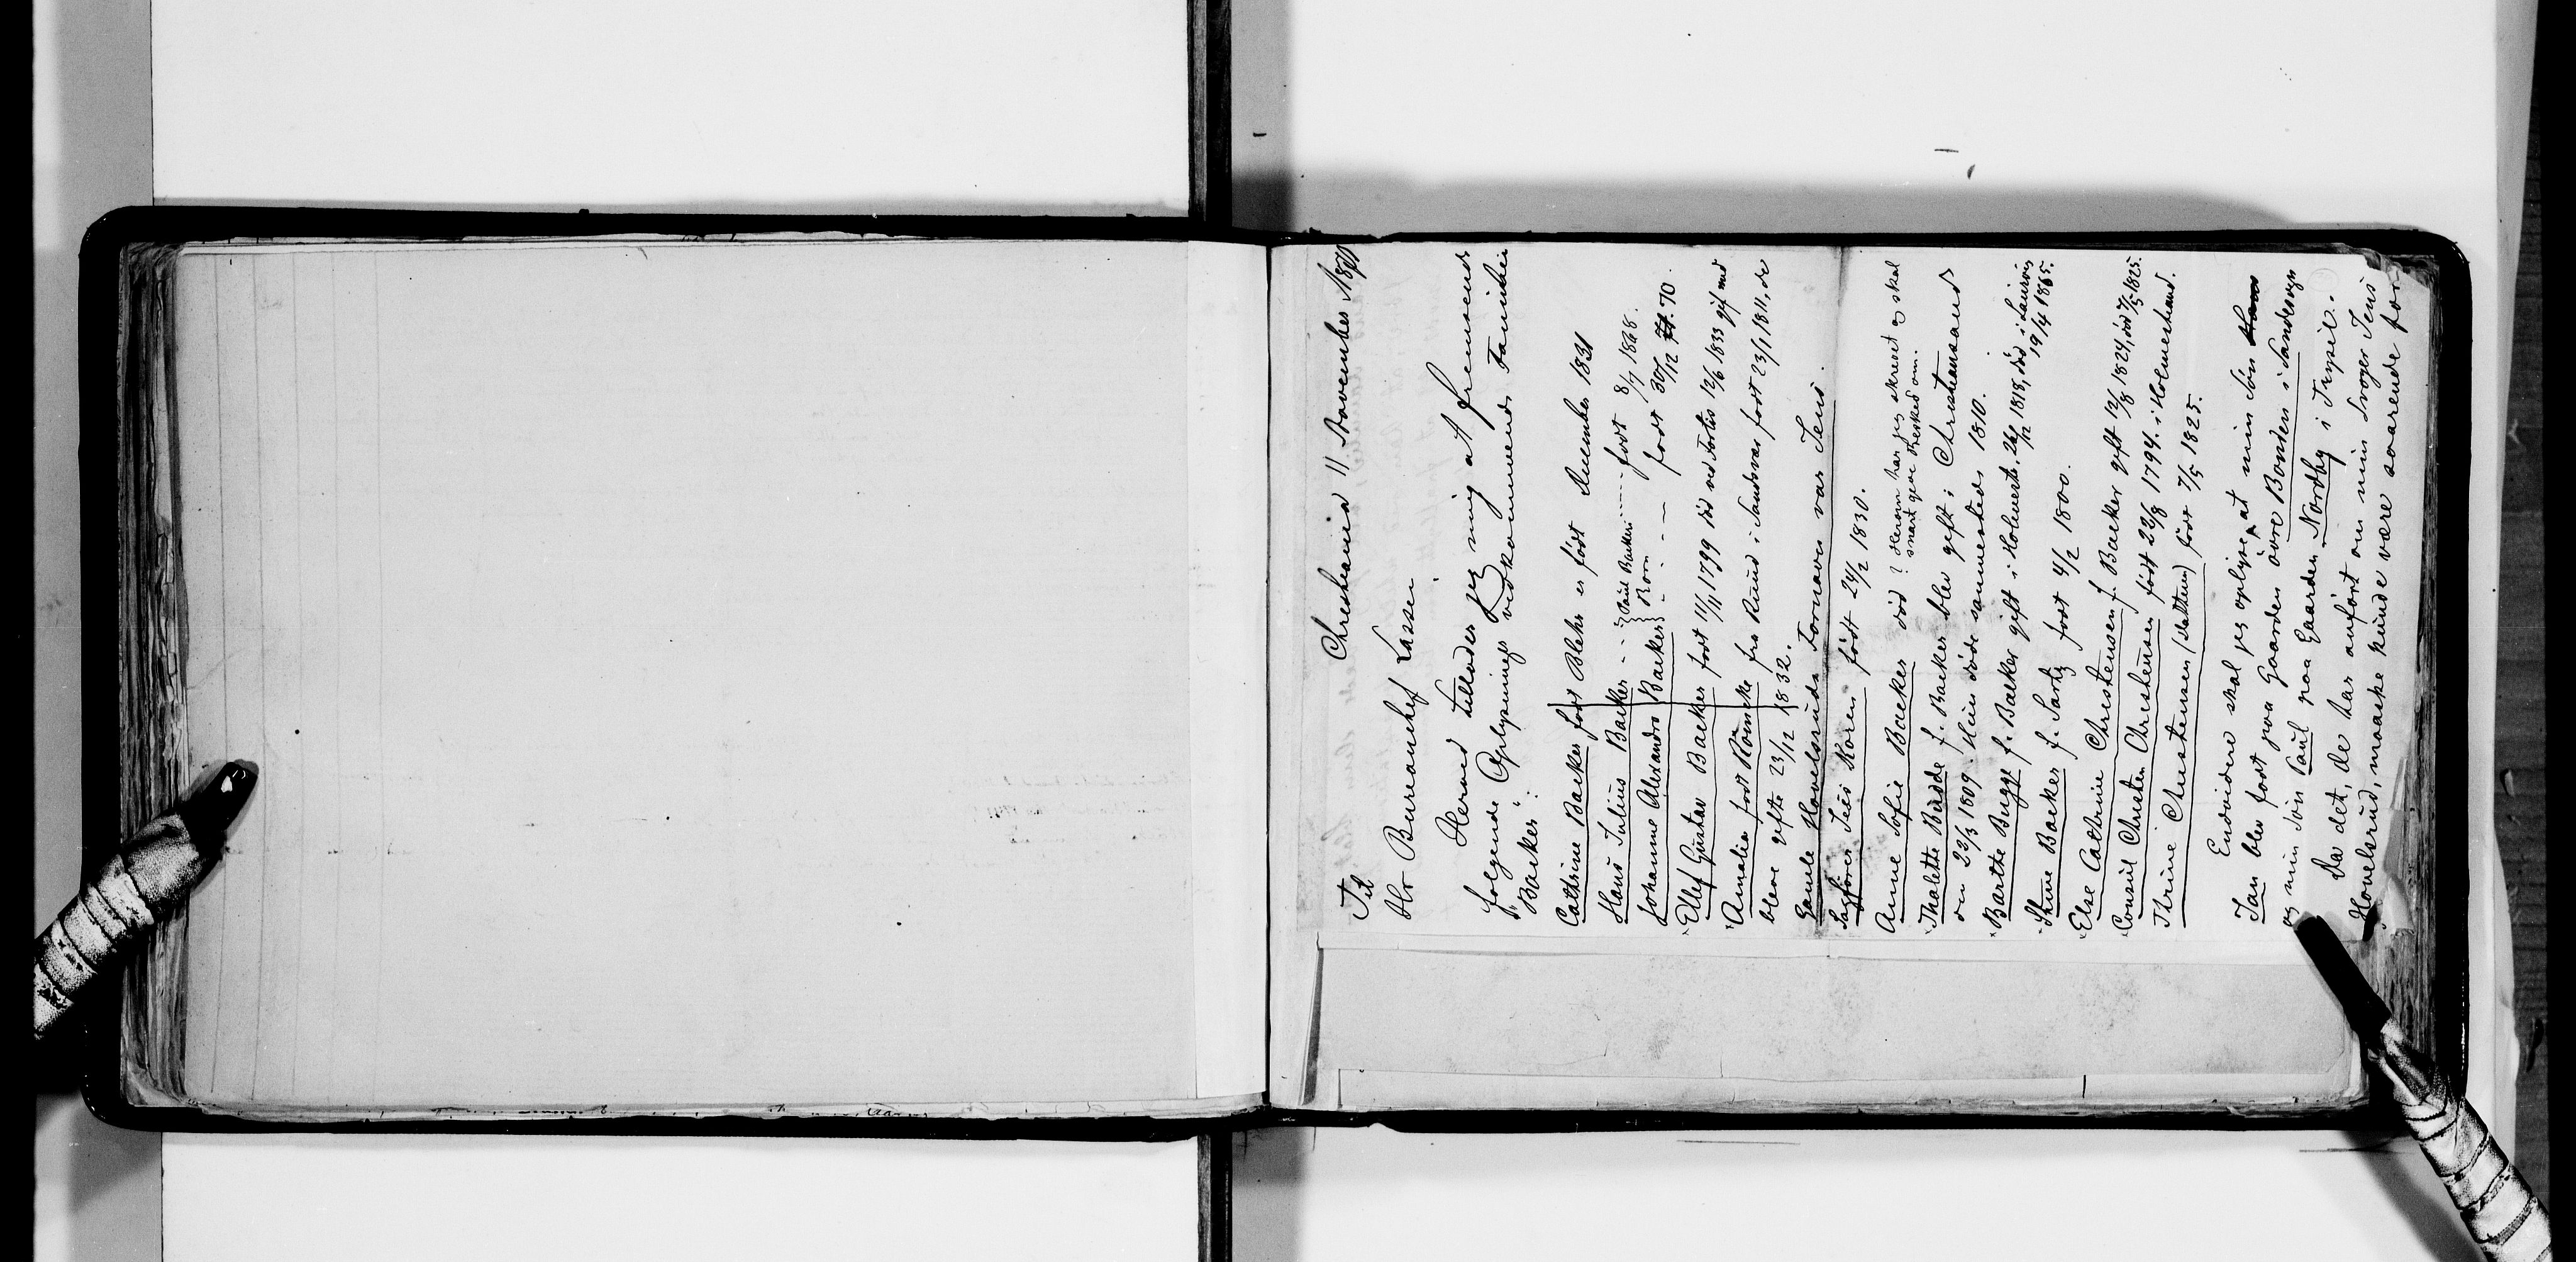 Christiania 11 November 18
Til
Hr Bureauchef Lassen.
Herved tillader jeg mig at fremsende
følgende Oplysninger vedkommende Familien
"Backer":
Cathrine Backer født Blehr er født December 1831
Hans Julius Backer - - } Paul Backers født 8/7 1868.
Johanne Alexandra Backer } Børn - - - født 30/12 70.
Ellef Gustav Backer født 11/11 1799 død ved 12/6 1833 gift med
Amalia født Römcke fra Ruud i Sandsvær født 23/1 1811, de
bleve gifte 23/12 1832.
Gamle Hovelsruds Fornavn var Jens.
Sagfører Jens Koren født 24/2 1830.
Anne Sofie Backer død ? Herom har jeg skrevet og skal
snart give Besked om.
Thalette Budde f. Backer blev gift i Christianssand
den 23/3 1809. Hun døde sammesteds 1810.
Barthe Bugge f. Backer gift i Holmestr. 1818, død i Laurvig
19/4 1865.
Stine Backer f. Sartz født 4/2 1800.
Else Cathrine Christensen f. Backer gift 12/8 1824, død 7/5 1825.
Consul Christen Christensen født 22/8 1794. i Holmestrand.
Thrine Christensen (Datteren) født 7/5 1825.
Endvidere skal jeg oplyse, at min Søn
Jan blev født paa Gaarden øvre Bonden i Sandesogn
og min Søn Paul paa Gaarden Nordby i Trysil.
Da det, de har anført om min Svoger Jens
Hovelsrud, maaske kunde være saarende for